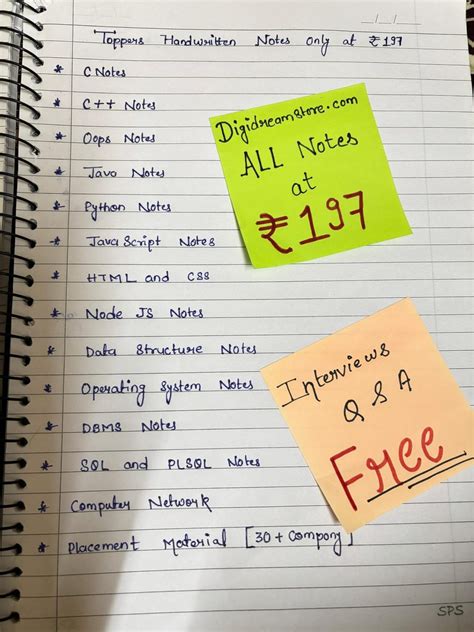 __/__/__
Toppers Handwritten Notes Only at ₹197
* C Notes
* C++ Notes
* Oops Notes
* Java Notes
* Python Notes
* JavaScript Notes
* HTML and CSS
* Node JS Notes
* Data Structure Notes
* Operating System Notes
* DBMS Notes
* SQL and PLSQL Notes
* Computer Network
* Placement Material [30+ Company]
Digidreamstore.com
ALL Notes
at
₹197
Interviews
Q & A
Free
SPS